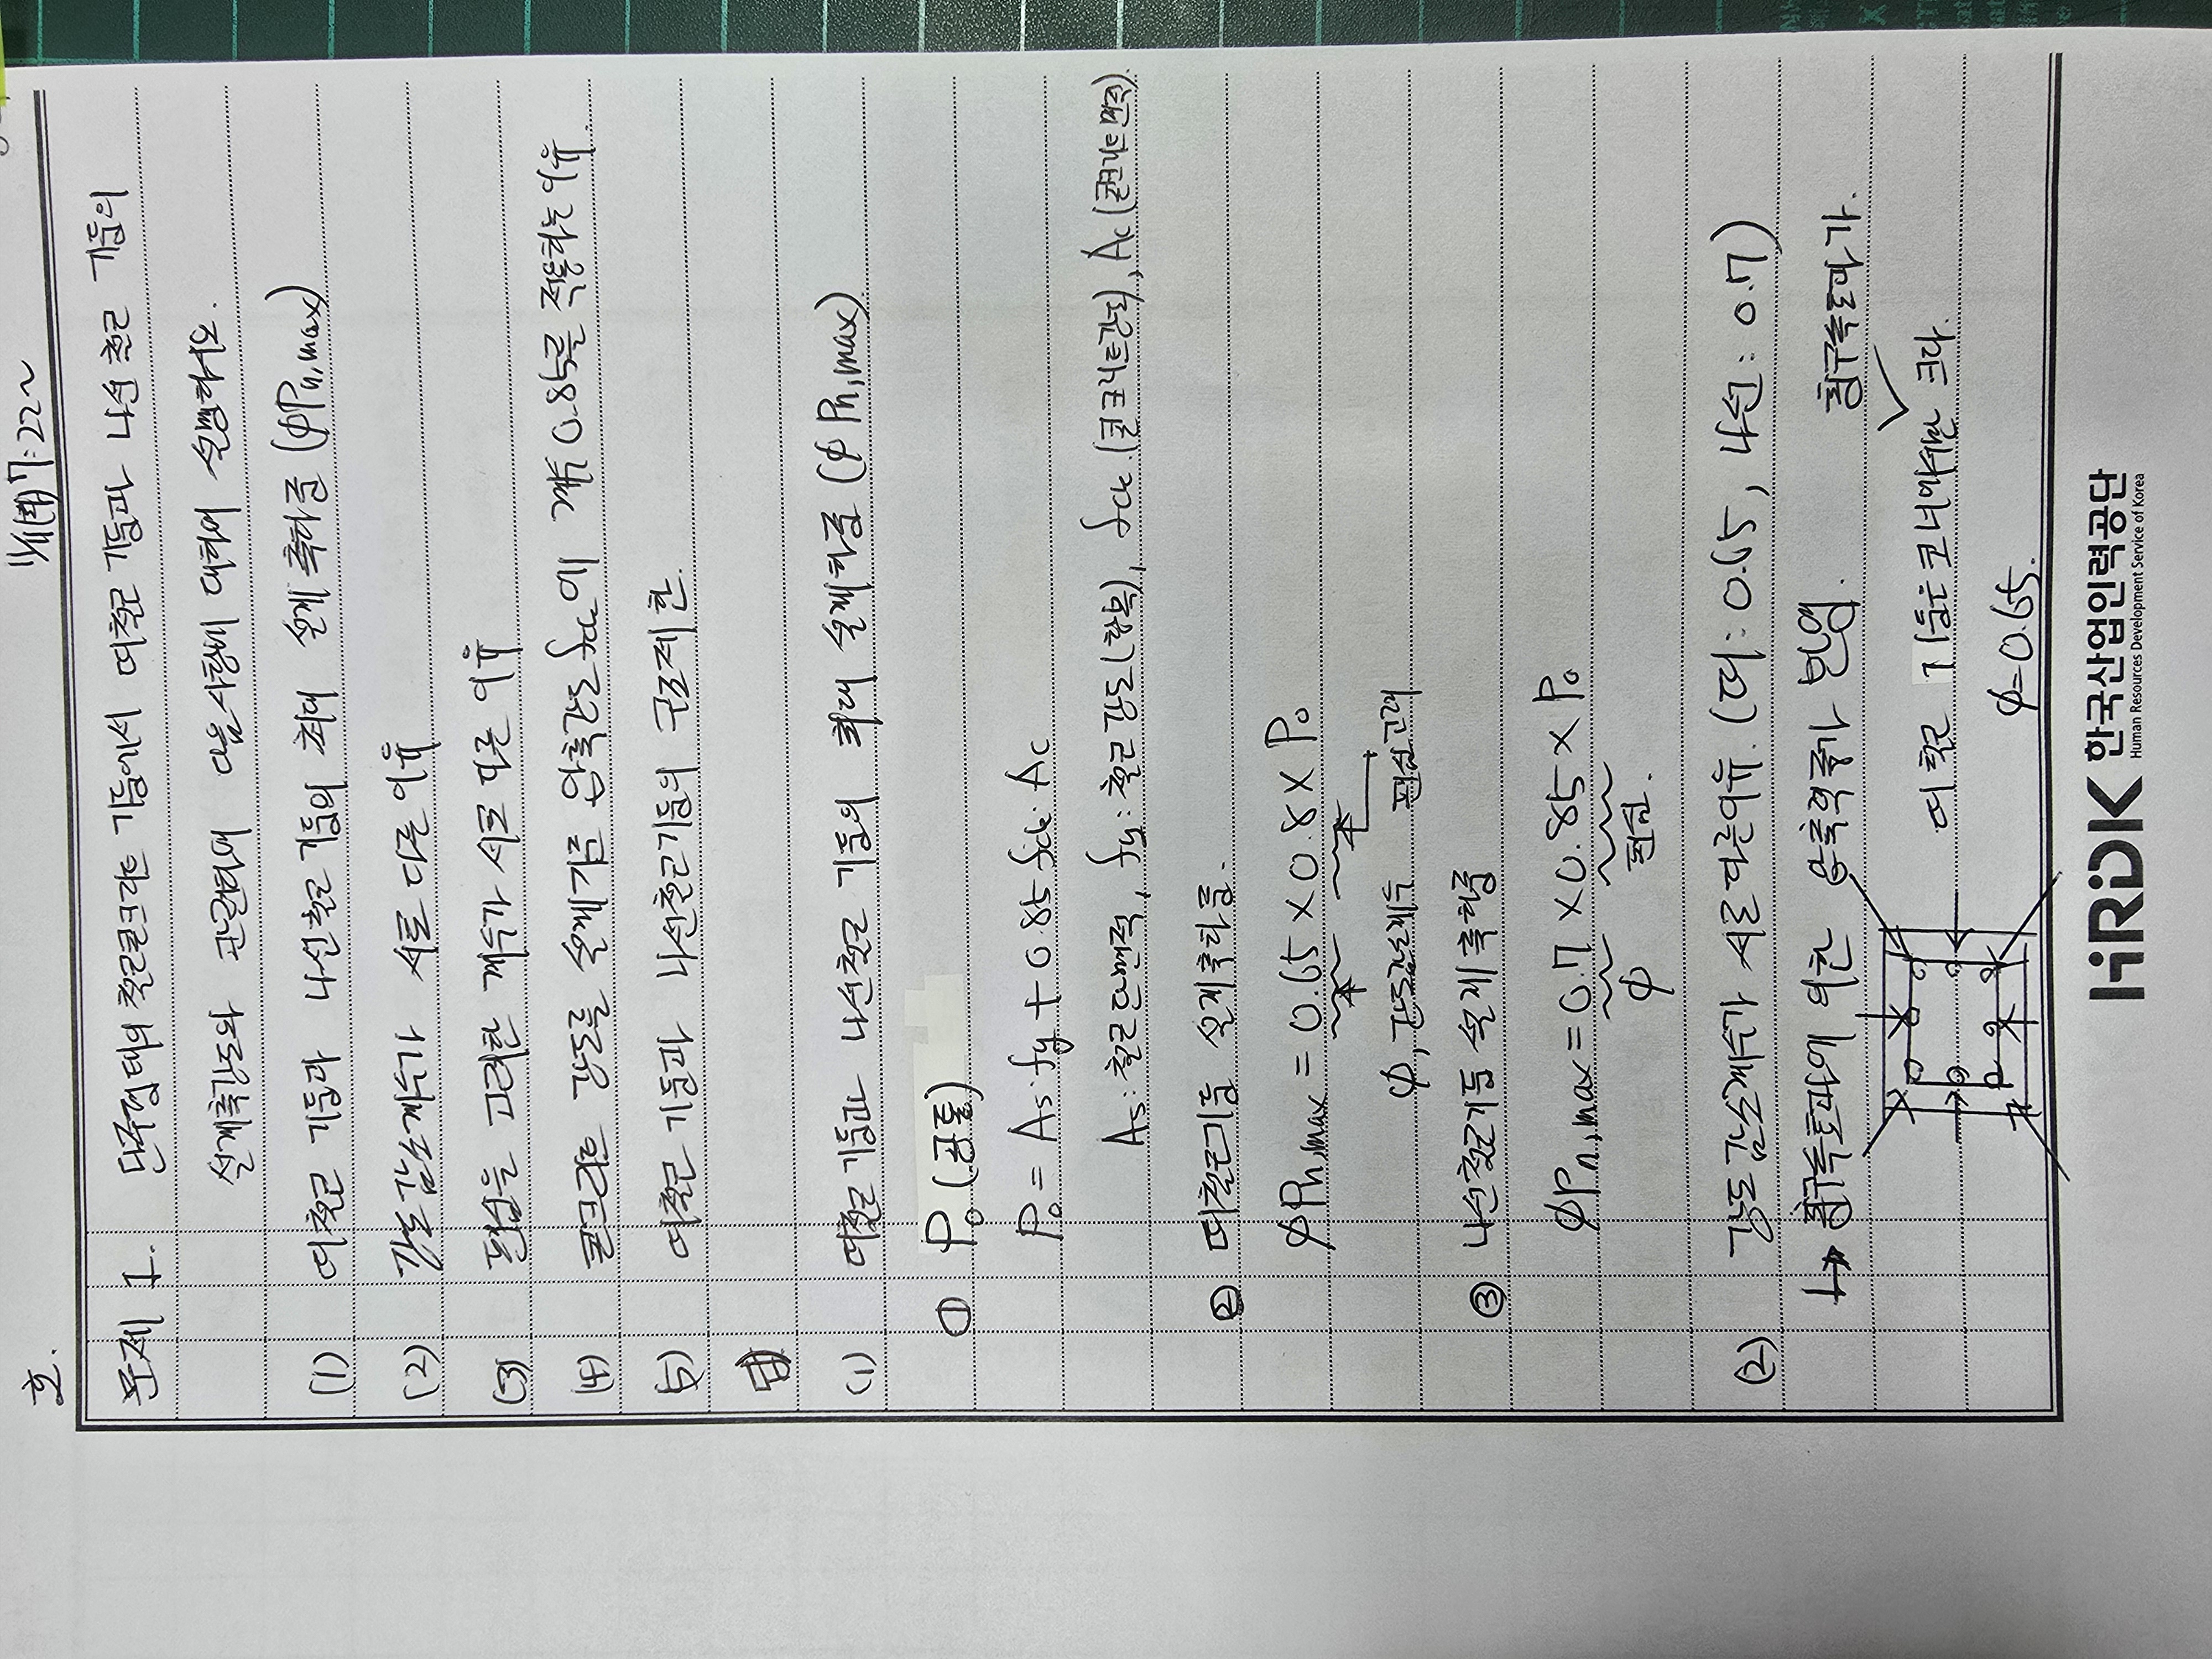 호.
11/1(田)7:22~
문제 1. 단주압대의 철근콘크리트 기둥에서 띠철근 기둥과 나선 철근 기둥의
설계축하중과 관련해 다음사항에 대하여 설명하라.
(1) 띠철근 기둥과 나선철근 기둥의 최대 설계 축하중 (φPn,max)
(2) 강도감소계수가 서로 다른 이유
(3) 편심을 고려한 계수가 서로 다른 이유
(4) 콘크리트 응력을 등가 설계기준압축강도 fck의 0.85로 취하는 이유.
(5) 띠철근 기둥과 나선철근기둥의 구조세목.
답
(1) 띠철근 기둥과 나선철근 기둥의 최대 설계하중 (φPn,max)
① P₀ (공통)
P₀ = As·fy + 0.85 fck·Ac
As:철근단면적, fy:철근강도(항복), fck:콘크리트강도, Ac(콘크리트)
② 띠철근기둥 설계축하중.
φPn,max = 0.65 × 0.8 × P₀
φ, 강도감소계수 편심고려
③ 나선철근기둥 설계축하중
φPn,max = 0.7 × 0.85 × P₀
φ 편심.
(2) 강도감소계수가 서로다른이유. (띠: 0.65, 나선: 0.7)
횡구속효과가
띠철근 기둥은 코너에만 크다
φ=0.65.
HRDK 한국산업인력공단
Human Resources Development Service of Korea